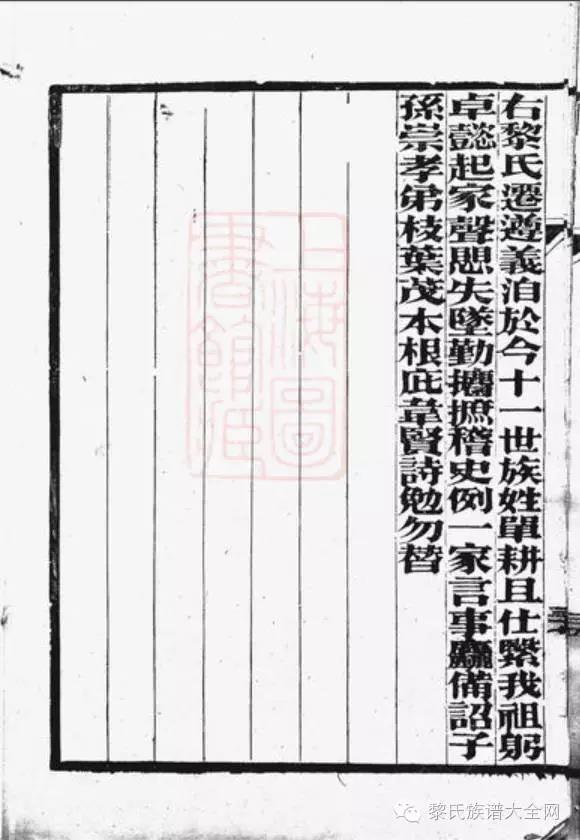 右黎氏遷遵義洎於今十一世族姓單耕且仕繄我祖躬
卓懿起家聲思失墜勤攟摭稽史例一家言事麤備詔子
孫崇孝弟枝葉茂本根庇韋賢詩勉勿替
上海圖
書館藏
黎氏族谱大全网